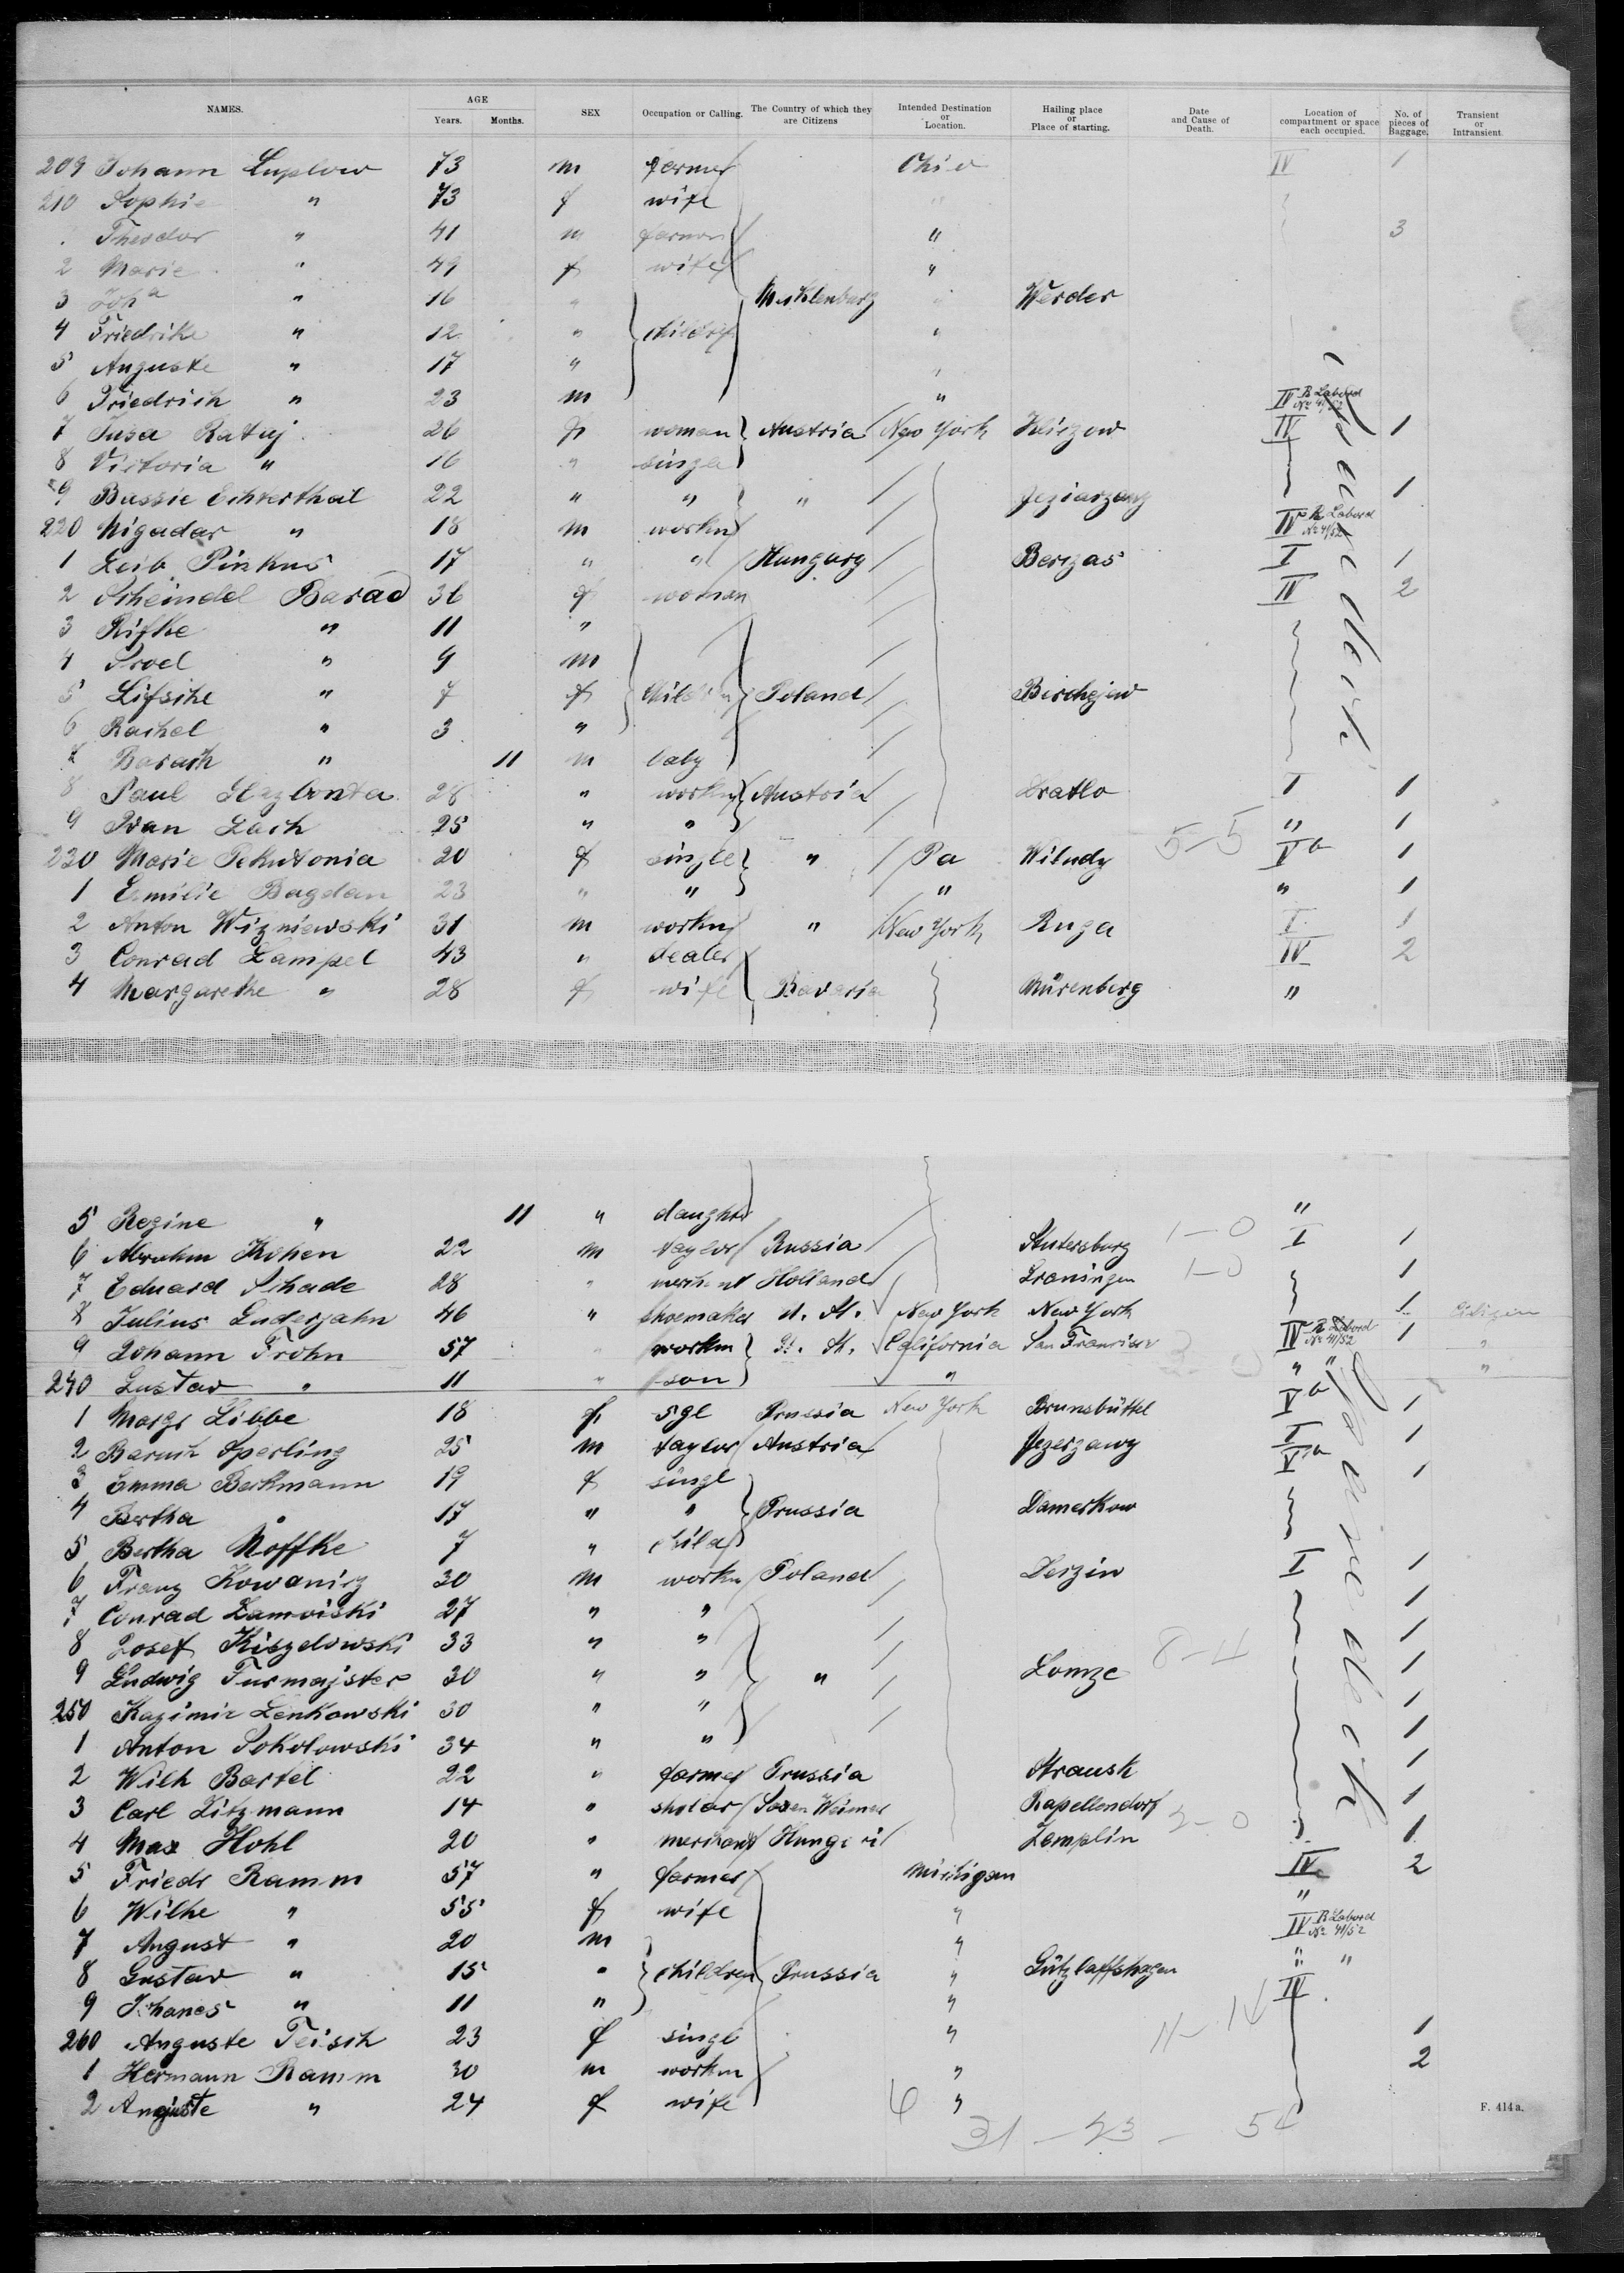 NAMES. AGE Years. Months. SEX Occupation or Calling. The Country of which they are Citizens Intended Destination or Location. Hailing place or Place of starting. Date and Cause of Death. Location of compartment or space each occupied. No. of pieces of Baggage. Transient or Intransient.
209 Johann Luplow 73 m farmer Ohio IV 1
210 Sophie " 73 f wife "
Theodor " 41 m farmer " 3
2 Marie " 49 f wife "
3 Joh a " 16 " Mecklenburg " Werder
4 Friedrike " 12 " children "
5 Auguste " 17 " "
6 Friedrich " 23 m " IV R Labord No 41/52
7 Rataj 26 f woman Austria New York IV 1
8 Victoria " 16 " single
9 Bassie Echverthal 22 " " " Jeziarzany 1
220 Nigadar " 18 m workm IV R Labord No 41/52
1 Leib Pinkus 17 " " Hungary Berezas I 1
2 Scheindel Barad 36 f woman IV 2
3 Rifke " 11 "
4 Sroel " 9 m
5 Lifsche " 7 f children Poland
6 Rachel " 3 "
7 Barach " 11 m baby
8 Paul 28 " workm Austria I 1
9 Iwan Lach 25 " " " 1
230 Marie 20 f single " Pa 5-5 Va 1
1 Emilie Bagdan 23 " " " " 1
2 Anton Wizniewski 31 m workm " New York Ruga I 1
3 Conrad Lampel 43 " dealer IV 2
4 Margarethe " 28 f wife Bavaria Nürenberg "
5 Regine " 11 " daughter "
6 Abrahm Kohen 22 m taylor Russia 1-0 I 1
7 Eduard Schade 28 " merchant Holland Groningen 1-0 1
8 Julius Enderjahn 46 " shoemaker U. St. New York New York 1 Citizen
9 Johann Frohn 57 " workm U. St. California San Francisco IV R Labord No 41/52 1 "
240 Gustav " 11 " son " " " "
1 Margr Libbe 18 f sgl Prussia New York Brunsbüttel Va 1
2 Baruch Sperling 25 m taylor Austria Jezerzany I 1
3 Emma Berkmann 19 f singl Va 1
4 Bertha " 17 " " Prussia Damerkow
5 Bertha Noffke 7 " child
6 Franz Kowanicz 30 m workm Poland I 1
7 Conrad Zamoiski 27 " " 1
8 Josef Kiszelowski 33 " " 8-4 1
9 Ludwig Furmajster 30 " " " Lomze 1
250 Kazimir Lenkowski 30 " " 1
1 Anton Sokolowski 34 " " 1
2 Wilh Bartel 22 " farmer Prussia 1
3 Carl Litzmann 14 " Saxen Weimar Kapellendorf 1
4 Max Hohl 20 " merchant Zemplin 2-0 1
5 Friedr Ramm 57 " farmer Michigan IV 2
6 Wilhe " 55 f wife " "
7 August " 20 m " IV R Labord No 41/52
8 Gustav " 15 " children Prussia " Gützlaffshagen " "
9 Johanes " 11 " " IV
260 Auguste Teisch 23 f singl " 1
1 Hermann Ramm 30 m workm " 2
2 Auguste " 24 f wife "
F. 414 a.
31 - 23 - 54